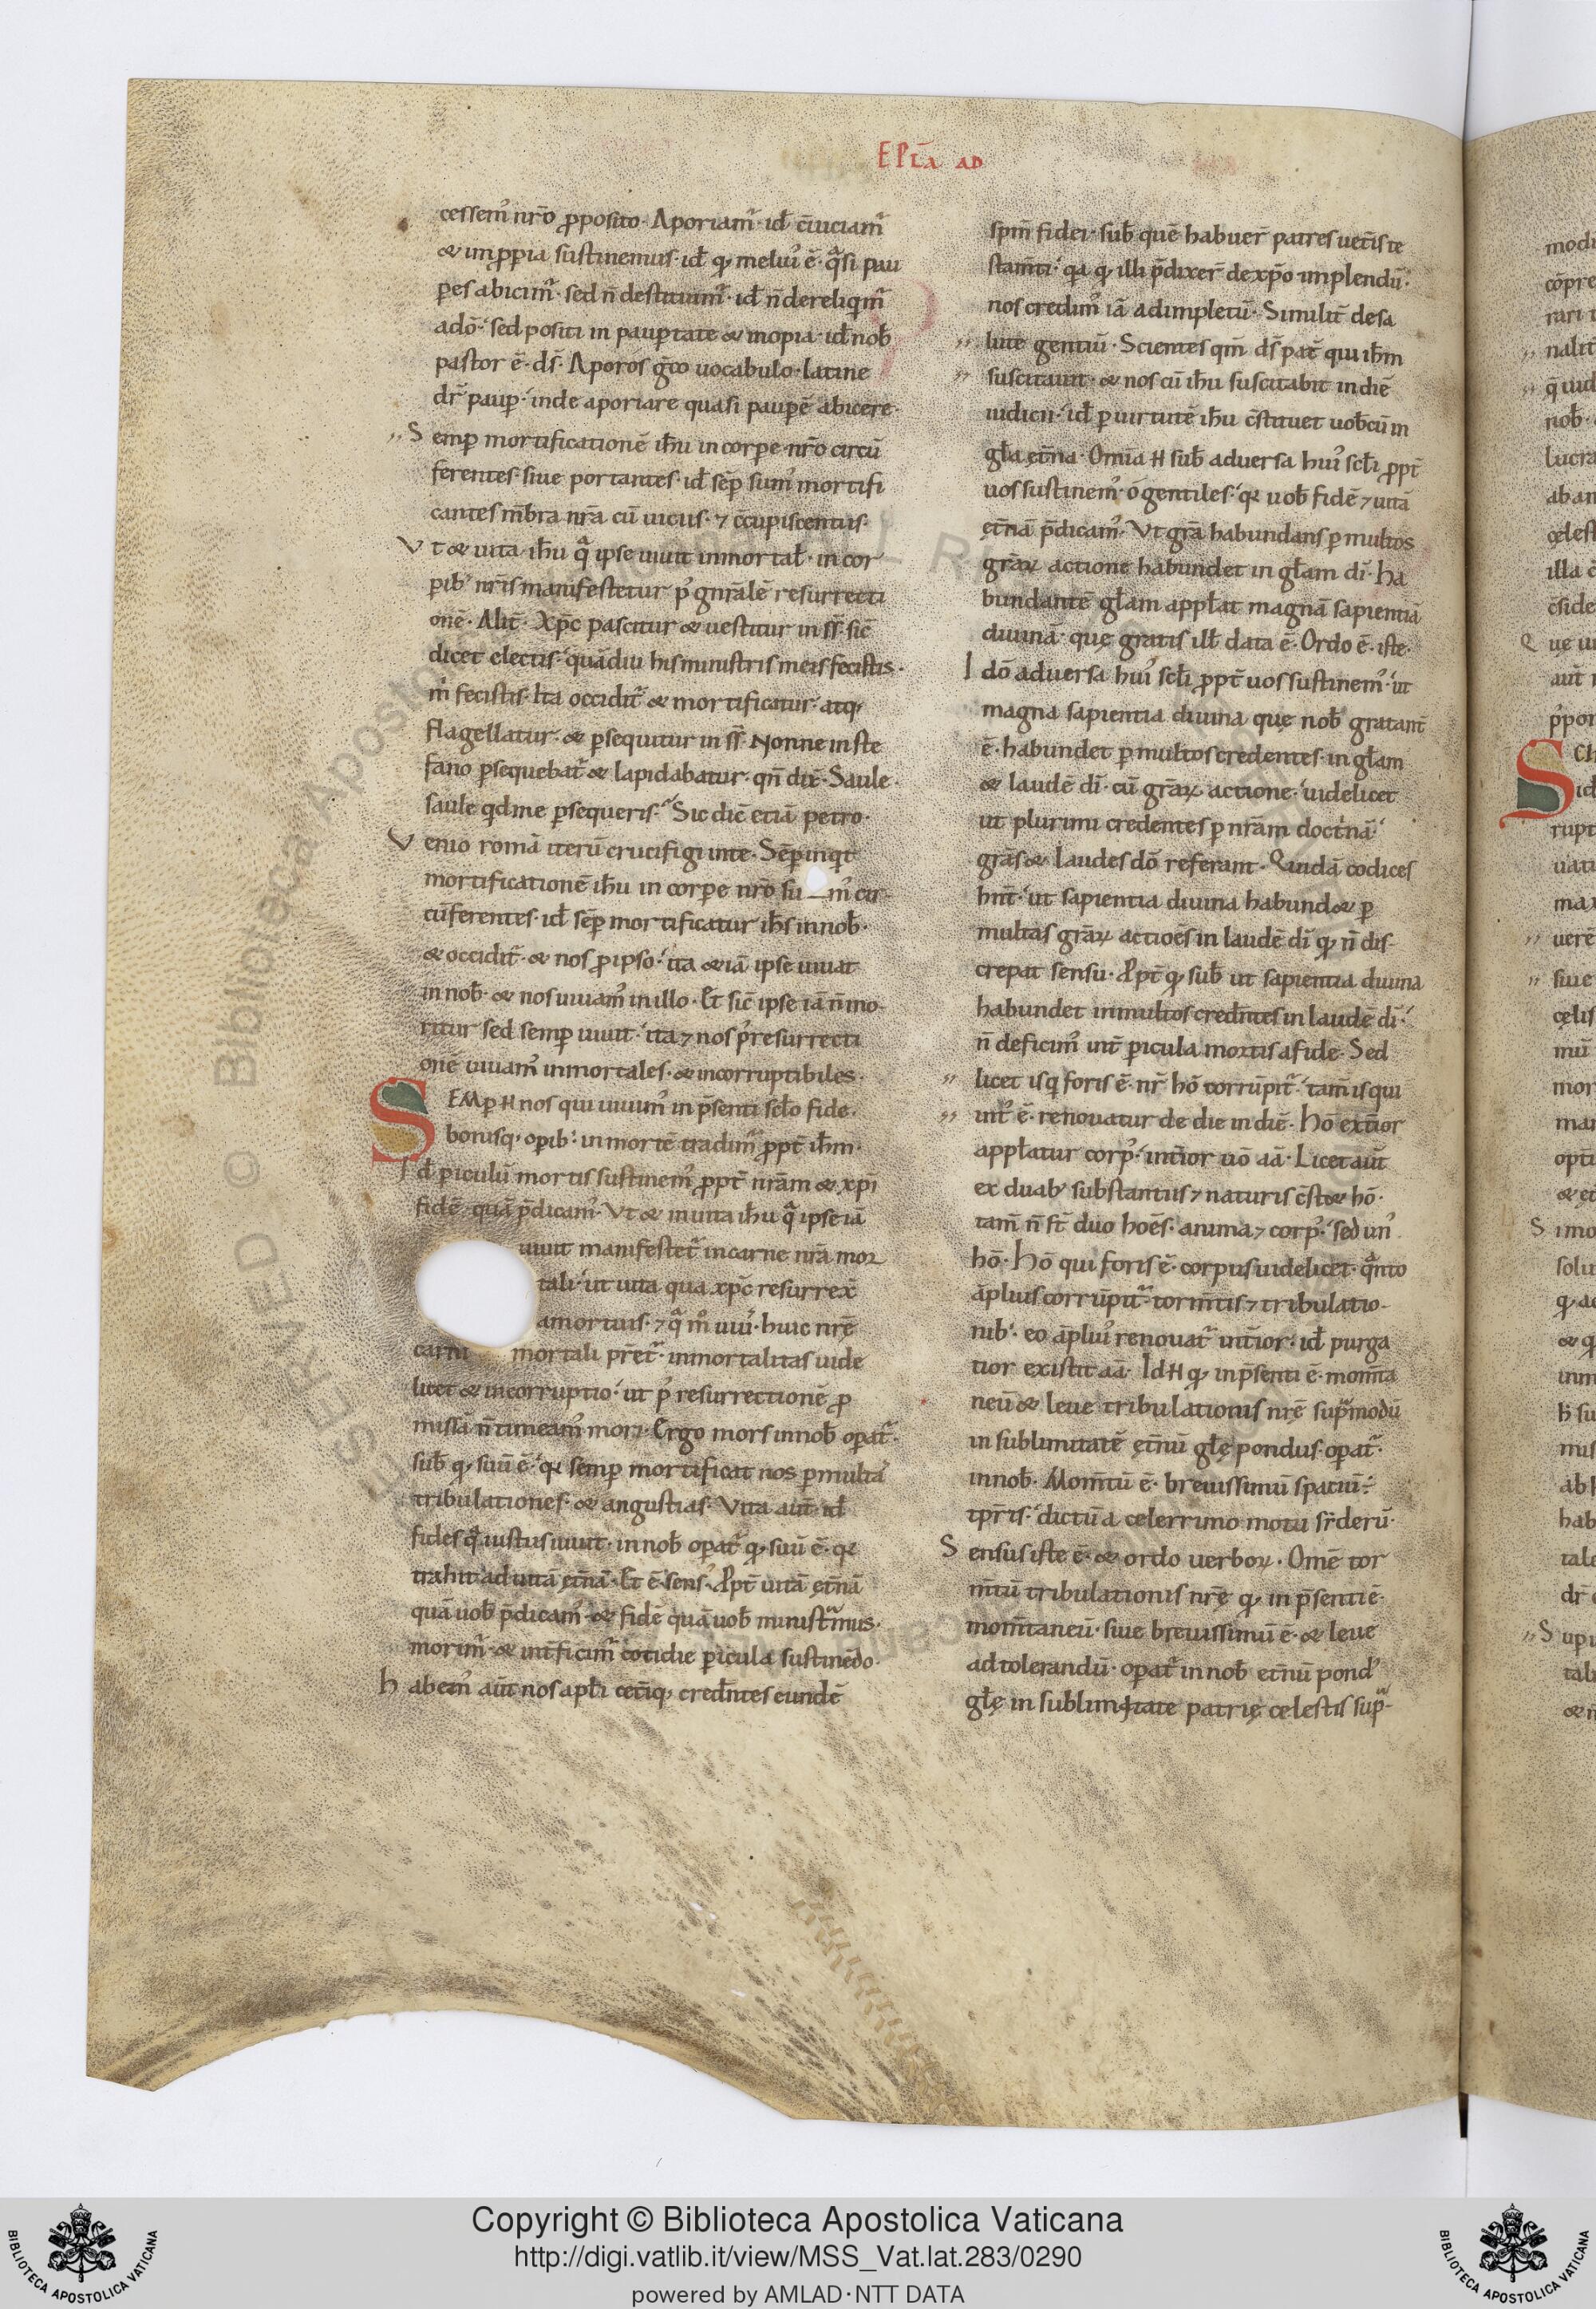 EPLA AD
cessem᷒ nr̄o ꝓposito. Aporiam᷑. id ē inciam᷑
& inꝓpꝑia sustinemus. id qꝫ meliuꝰ ē. q̄si pau
ꝑes abicim᷑. sed n̄ destituim᷑. id n̄ dereliqim᷑
adō. sed positi in pauꝑtate & inopia. id nob̄
pastor ē. ds̄. Aporos gͦco uocabulo. latine
dr̄ pauꝑ. inde aporiare quasi pauꝑē abicere.
Semꝑ mortificationē ih̄u in corꝑe nr̄o circū
ferentes. siue portantes. id sēꝑ sumꝰ mortifi
cantes m̄bra nr̄a cū uiciis. ⁊ c̄cupiscentiis.
Vt & uita. ih̄u q̄ ipse uiuit inmortal̄. in cor
ꝑibꝰ nr̄is manifestetur pꝰ gn̄ralē resurrecti
onē. Alit̄. Xp̄c pascitur & uestitur in ss̄. sic̄
dicet electis. quādiu his ministris meis fecistis.
m̄ fecistis. Ita occidit᷑ & mortificatur. atqꝫ
flagellatur. & ꝑsequitur in ss̄. Nonne in ste
fano ꝑsequebat᷑ & lapidabatur. qn̄ dic̄. Saule.
saule qd me ꝑsequeris. Sic dic̄ etiā petro.
Venio romā iterū crucifigi in te. Sēꝑ inqt
mortificationē ih̄u in corꝑe nr̄o su mꝰ cir
cūferentes. id sēꝑ mortificatur ih̄s in nob̄.
& occidit᷑. & nos ꝓ ipso. ita & iā ipse uiuat
in nob̄. & nos uiuamꝰ in illo. Et sic̄ ipse iā n̄ mo
ritur sed semꝑ uiuit. ita ⁊ nos pꝰ resurrecti
onē uiuamꝰ inmortales. & incorruptibiles.
SEMꝑ H nos qui uiuimꝰ in p̄senti sc̄lo fide.
bonisqꝫ oꝑibꝰ. in mortē tradim᷑ ꝓpt̄ ih̄m.
Id ꝑiculū mortis sustinemꝰ ꝓpt̄ nr̄am & xp̄i
fidē. quā p̄dicamꝰ. Vt & in uita ih̄u q̄ ipse iā
uiuit manifestet᷑ in carne nr̄a mor
tali. ut uita qua xp̄c resurrex̄
a mortuis. ⁊ q̄ mͦ uiuꝰ. huic nr̄ę
carni mortali p̄ret᷑. inmortalitas uide
licet & incorruptio. ut pꝰ resurrectionē ꝓ
missā n̄ timeamꝰ mori. Ergo mors in nob̄ oꝑat᷑.
sub̄ qꝫ suū ē. qꝛ semꝑ mortificat nos ꝑ multas
tribulationes. & angustias. Vita aūt. id
fides q̄ iustus uiuit. in nob̄ oꝑat᷑ qꝫ suū ē. qꝛ
trahit ad uitā et̄nā. Et ē sensꝰ. Ꝓpt̄ uitā et̄nā
quā uob̄ p̄dicamꝰ. & fidē quā uob̄ ministramus.
morim᷑. & int̄ficim᷑ cotidie ꝑicula sustinēdo.
Habemꝰ aūt nos apl̄i cet̄iqꝫ cred̄ntes eundē
sp̄m fidei. sub̄ quē habuer̄ patres uet̄is te
stam̄ti. qa qꝫ illi p̄dixer̄ de xp̄o implendū.
nos credimꝰ iā adimpletū. Similit̄ de sa
lute gentiū. Scientes qm̄ ds̄ pat̄ qui ih̄m
suscitauit. & nos cū ih̄u suscitabit in diē
iudicii. id ꝑ uirtutē ih̄u c̄stituet uob̄cū in
gl̄a et̄na. Omīa H sub̄ aduersa huiꝰ sc̄li ꝓpt̄
uos sustinemꝰ. o gentiles. qꝛ uob̄ fidē ⁊ uitā
et̄nā p̄dicamꝰ. Vt gr̄a habundans ꝑ multos
gr̄aꝝ actione habundet in gl̄am dī. Ha
bundantē gl̄am appl̄at magnā sapientiā
diuinā. quę gratis ill̄ data ē. Ordo ē. iste.
Idō aduersa huiꝰ sc̄li ꝓpt̄ uos sustinemꝰ. ut
magna sapientia diuina quę nob̄ gratant̄
ē. habundet ꝑ multos credentes. in gl̄am
& laudē dī. cū gr̄aꝝ actione. uidelicet
ut plurimi credentes ꝑ nr̄am doctnā.
gr̄as & laudes dō referant. Quidā codices
hn̄t. ut sapientia diuina habund& ꝑ
multas gr̄aꝝ actiōes in laudē dī qꝫ n̄ dis
crepat sensu. Ꝓpt̄ qꝫ sub̄ ut sapientia diuina
habundet in multos cred̄ntes in laudē dī.
n̄ deficimꝰ int̄ ꝑicula mortis a fide. Sed
licet is q foris ē. nr̄ hō corrūpit᷑. tam̄ is qui
intꝰ ē. renouatur de die in diē. Hō ext̄ior
appl̄atur corpꝰ. int̄ior uō aā. Licet aūt
ex duabꝰ substantiis ⁊ naturis c̄st& hō.
tam̄ n̄ st̄ duo hoēs. anima ⁊ corpꝰ. sed unꝰ
hō. Hō qui foris ē. corpus uidelicet. q̄nto
āplius corrūpit᷑. torm̄tis ⁊ tribulatio
nibꝰ. eo āpliꝰ renouat᷑ int̄ior. id purga
tior existit aā. Id H qꝫ in p̄senti ē. mom̄ta
neū & leue tribulationis nr̄ę supᷓmodū
in sublimitatē et̄nū gl̄ę pondus. oꝑat᷑.
in nob̄. Mom̄tū ē. breuissimū spatiū
tp̄ris. dictū a celerrimo motu siderū.
Sensus iste ē. & ordo uerboꝝ. Omē tor
m̄tū tribulationis nr̄ę qꝫ in p̄senti ē.
mom̄taneū. siue breuissimū ē. & leue
ad tolerandū. oꝑat᷑ in nob̄ et̄nū pondꝰ
gl̄ę in sublimitate patrię celestis supᷓ
Copyright © Biblioteca Apostolica Vaticana
http://digi.vatlib.it/view/MSS_Vat.lat.283/0290
powered by AMLAD·NTT DATA
BIBLIOTECA APOSTOLICA VATICANA
BIBLIOTECA APOSTOLICA VATICANA